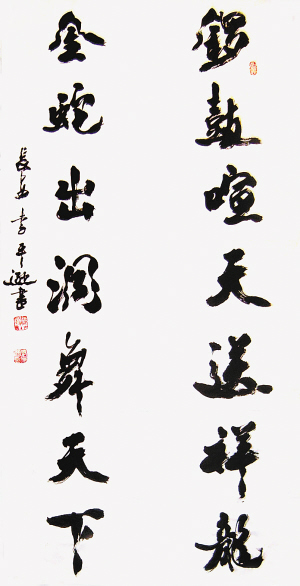 锣鼓喧天送祥龙
金蛇出洞舞天下
长安李平逊书